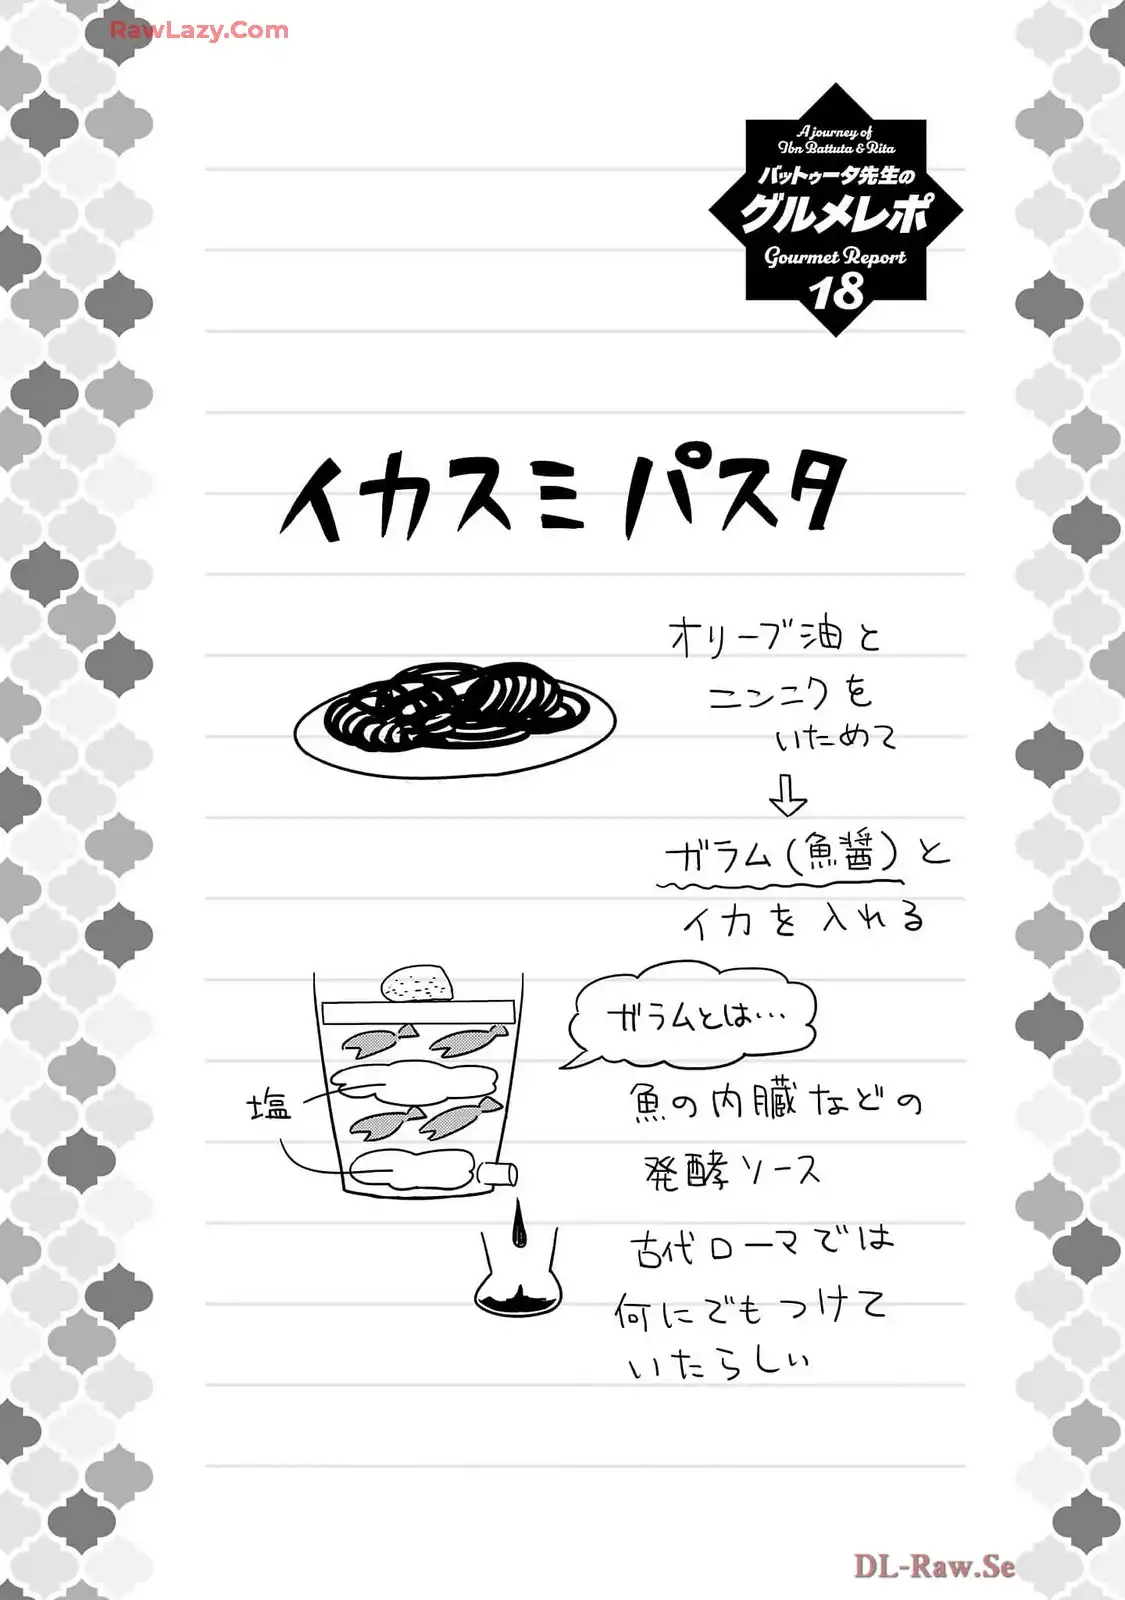 RawLazy.Com
A journey of
Ibn Battuta & Rita
バットゥータ先生の
グルメレポ
Gourmet Report
18
イカスミパスタ
オリーブ油と
ニンニクを
いためて
ガラム(魚醤)と
イカを入れる
ガラムとは…
塩
魚の内臓などの
発酵ソース
古代ローマでは
何にでもつけて
いたらしい
DL-Raw.Se